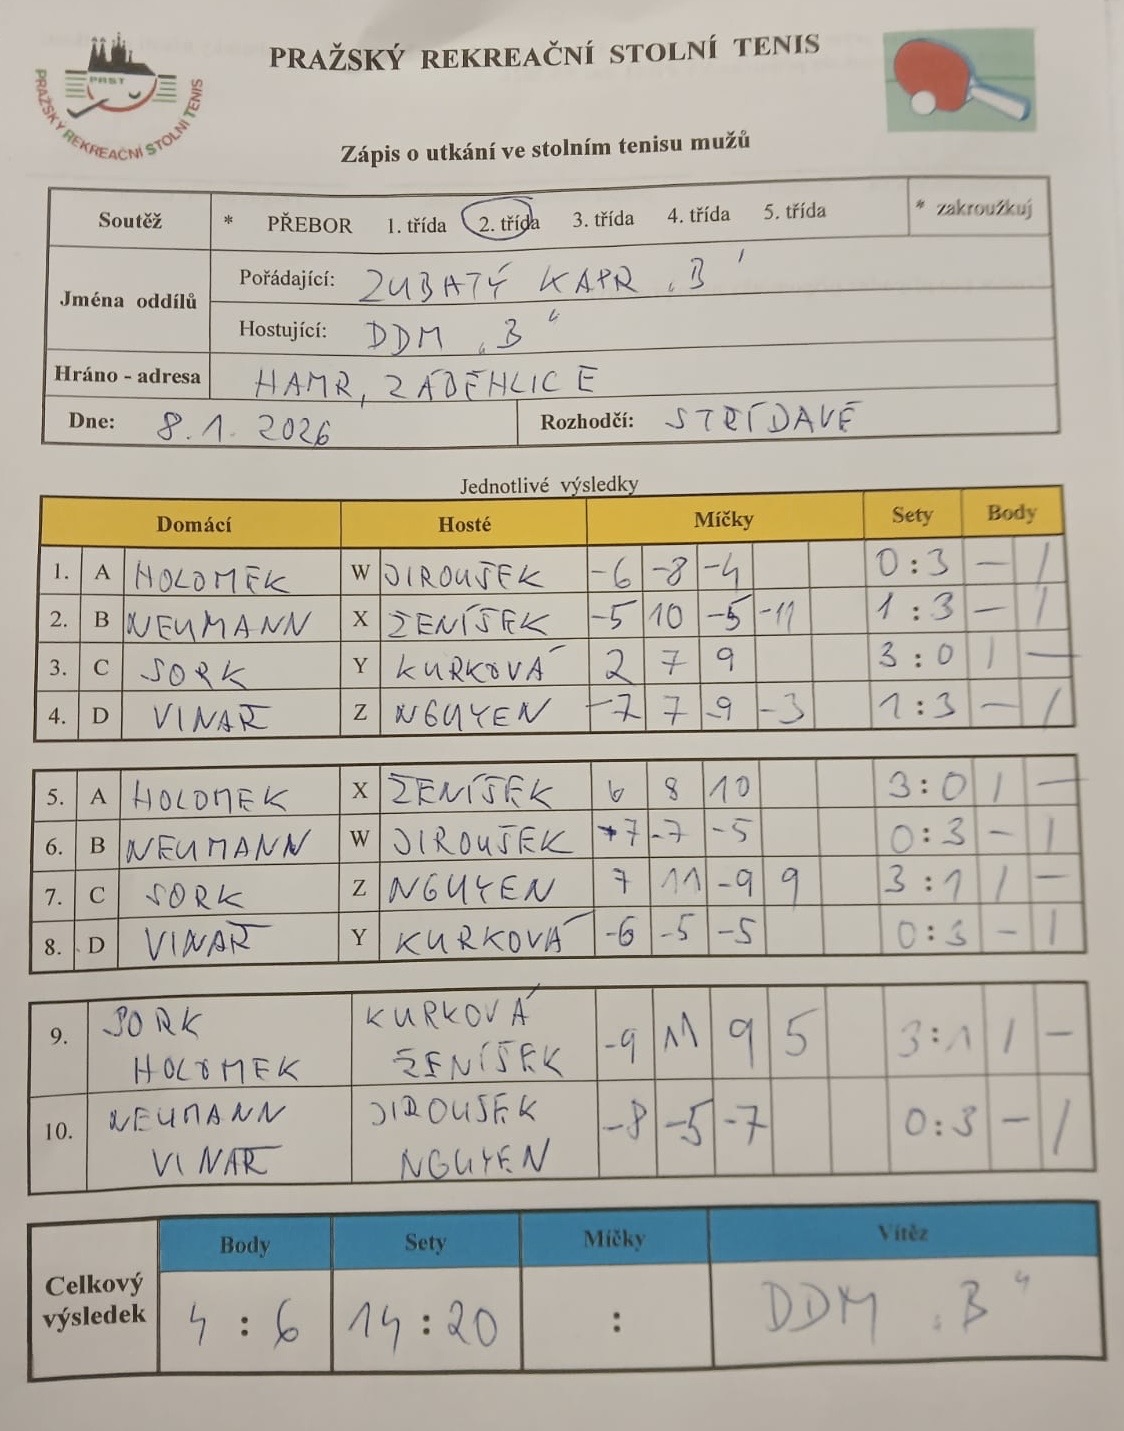 PRAŽSKÝ REKREAČNÍ STOLNÍ TENIS
PRST
PRAŽSKÝ REKREAČNÍ STOLNÍ TENIS
Zápis o utkání ve stolním tenisu mužů
Soutěž * PŘEBOR 1. třída 2. třída 3. třída 4. třída 5. třída * zakroužkuj
Jména oddílů
Pořádající: ZUBATÝ KAPR „B"
Hostující: DDM „B"
Hráno - adresa HAMR, ZÁBĚHLICE
Dne: 8.1. 2026 Rozhodčí: STŘÍDAVĚ
Jednotlivé výsledky
Domácí Hosté Míčky Sety Body
1. A HOLOMEK W JIROUŠEK -6 -8 -4 0:3 – 1
2. B NEUMANN X ŽENÍŠEK -5 10 -5 -11 1:3 – 1
3. C SORK Y KURKOVÁ 2 7 9 3:0 1 –
4. D VINAŘ Z NGUYEN -7 7 -9 -3 1:3 – 1
5. A HOLOMEK X ŽENÍŠEK 6 8 10 3:0 1 –
6. B NEUMANN W JIROUŠEK -7 -7 -5 0:3 – 1
7. C SORK Z NGUYEN 7 11 -9 9 3:1 1 –
8. D VINAŘ Y KURKOVÁ -6 -5 -5 0:3 – 1
9. SORK KURKOVÁ -9 11 9 5 3:1 1 –
HOLOMEK ŽENÍŠEK
10. NEUMANN JIROUŠEK -8 -5 -7 0:3 – 1
VINAŘ NGUYEN
Body Sety Míčky Vítěz
Celkový výsledek 4 : 6 14 : 20 : DDM „B"